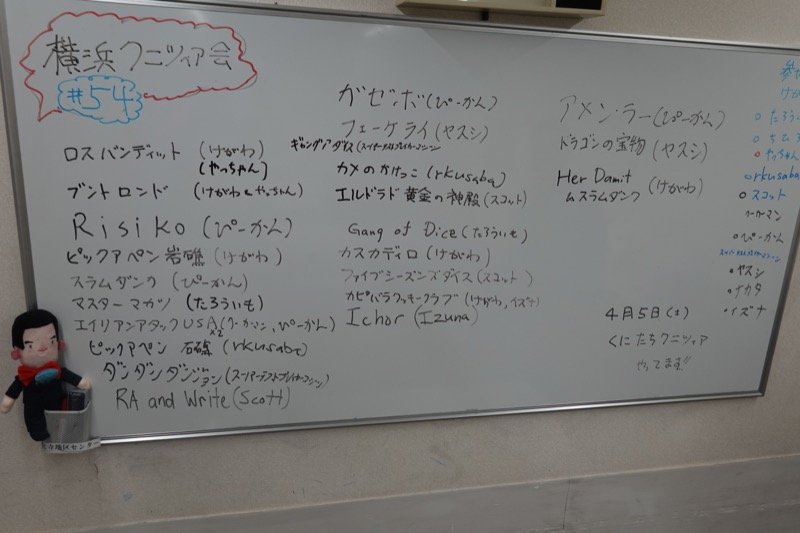 横浜クニツィア会
#54
ロスバンディット (けがわ)
(やっちゃん)
ブントロンド (けがわとやっちゃん)
Risiko (ぴーかん)
ピックアペン岩礁 (けがわ)
スラムダンク (ぴーかん)
マスターマカツ (たろういも)
エイリアンアタックUSA (ワーカーマン, ぴーかん)
x2
ピックアペン 石礁 (rkusaba)
ダンダンダンジョン
RA and Write (Scott)
ガゼボ (ぴーかん)
フェーケライ (ヤスシ)
ギャングノアダイス
カメのかけっこ (rkusaba)
エルドラド 黄金の神殿 (スコット)
Gang of Dice (たろういも)
カスカディロ (けがわ)
ファイブシーズンズダイス (スコット)
カピバラクッキークラブ (けがわ, イズナ)
Ichor (Izuna)
アメン・ラー (ぴーかん)
ドラゴンの宝物 (ヤスシ)
Her Damit (けがわ)
ムスラムダンク
4月5日(土)
くにたちクニツィア
やってます!!
参加
けが
たろう
ちひろ
やっちゃん
rkusaba
スコット
ワーカーマン
ぴーかん
ヤスシ
ナカタ
イズナ
地区センター